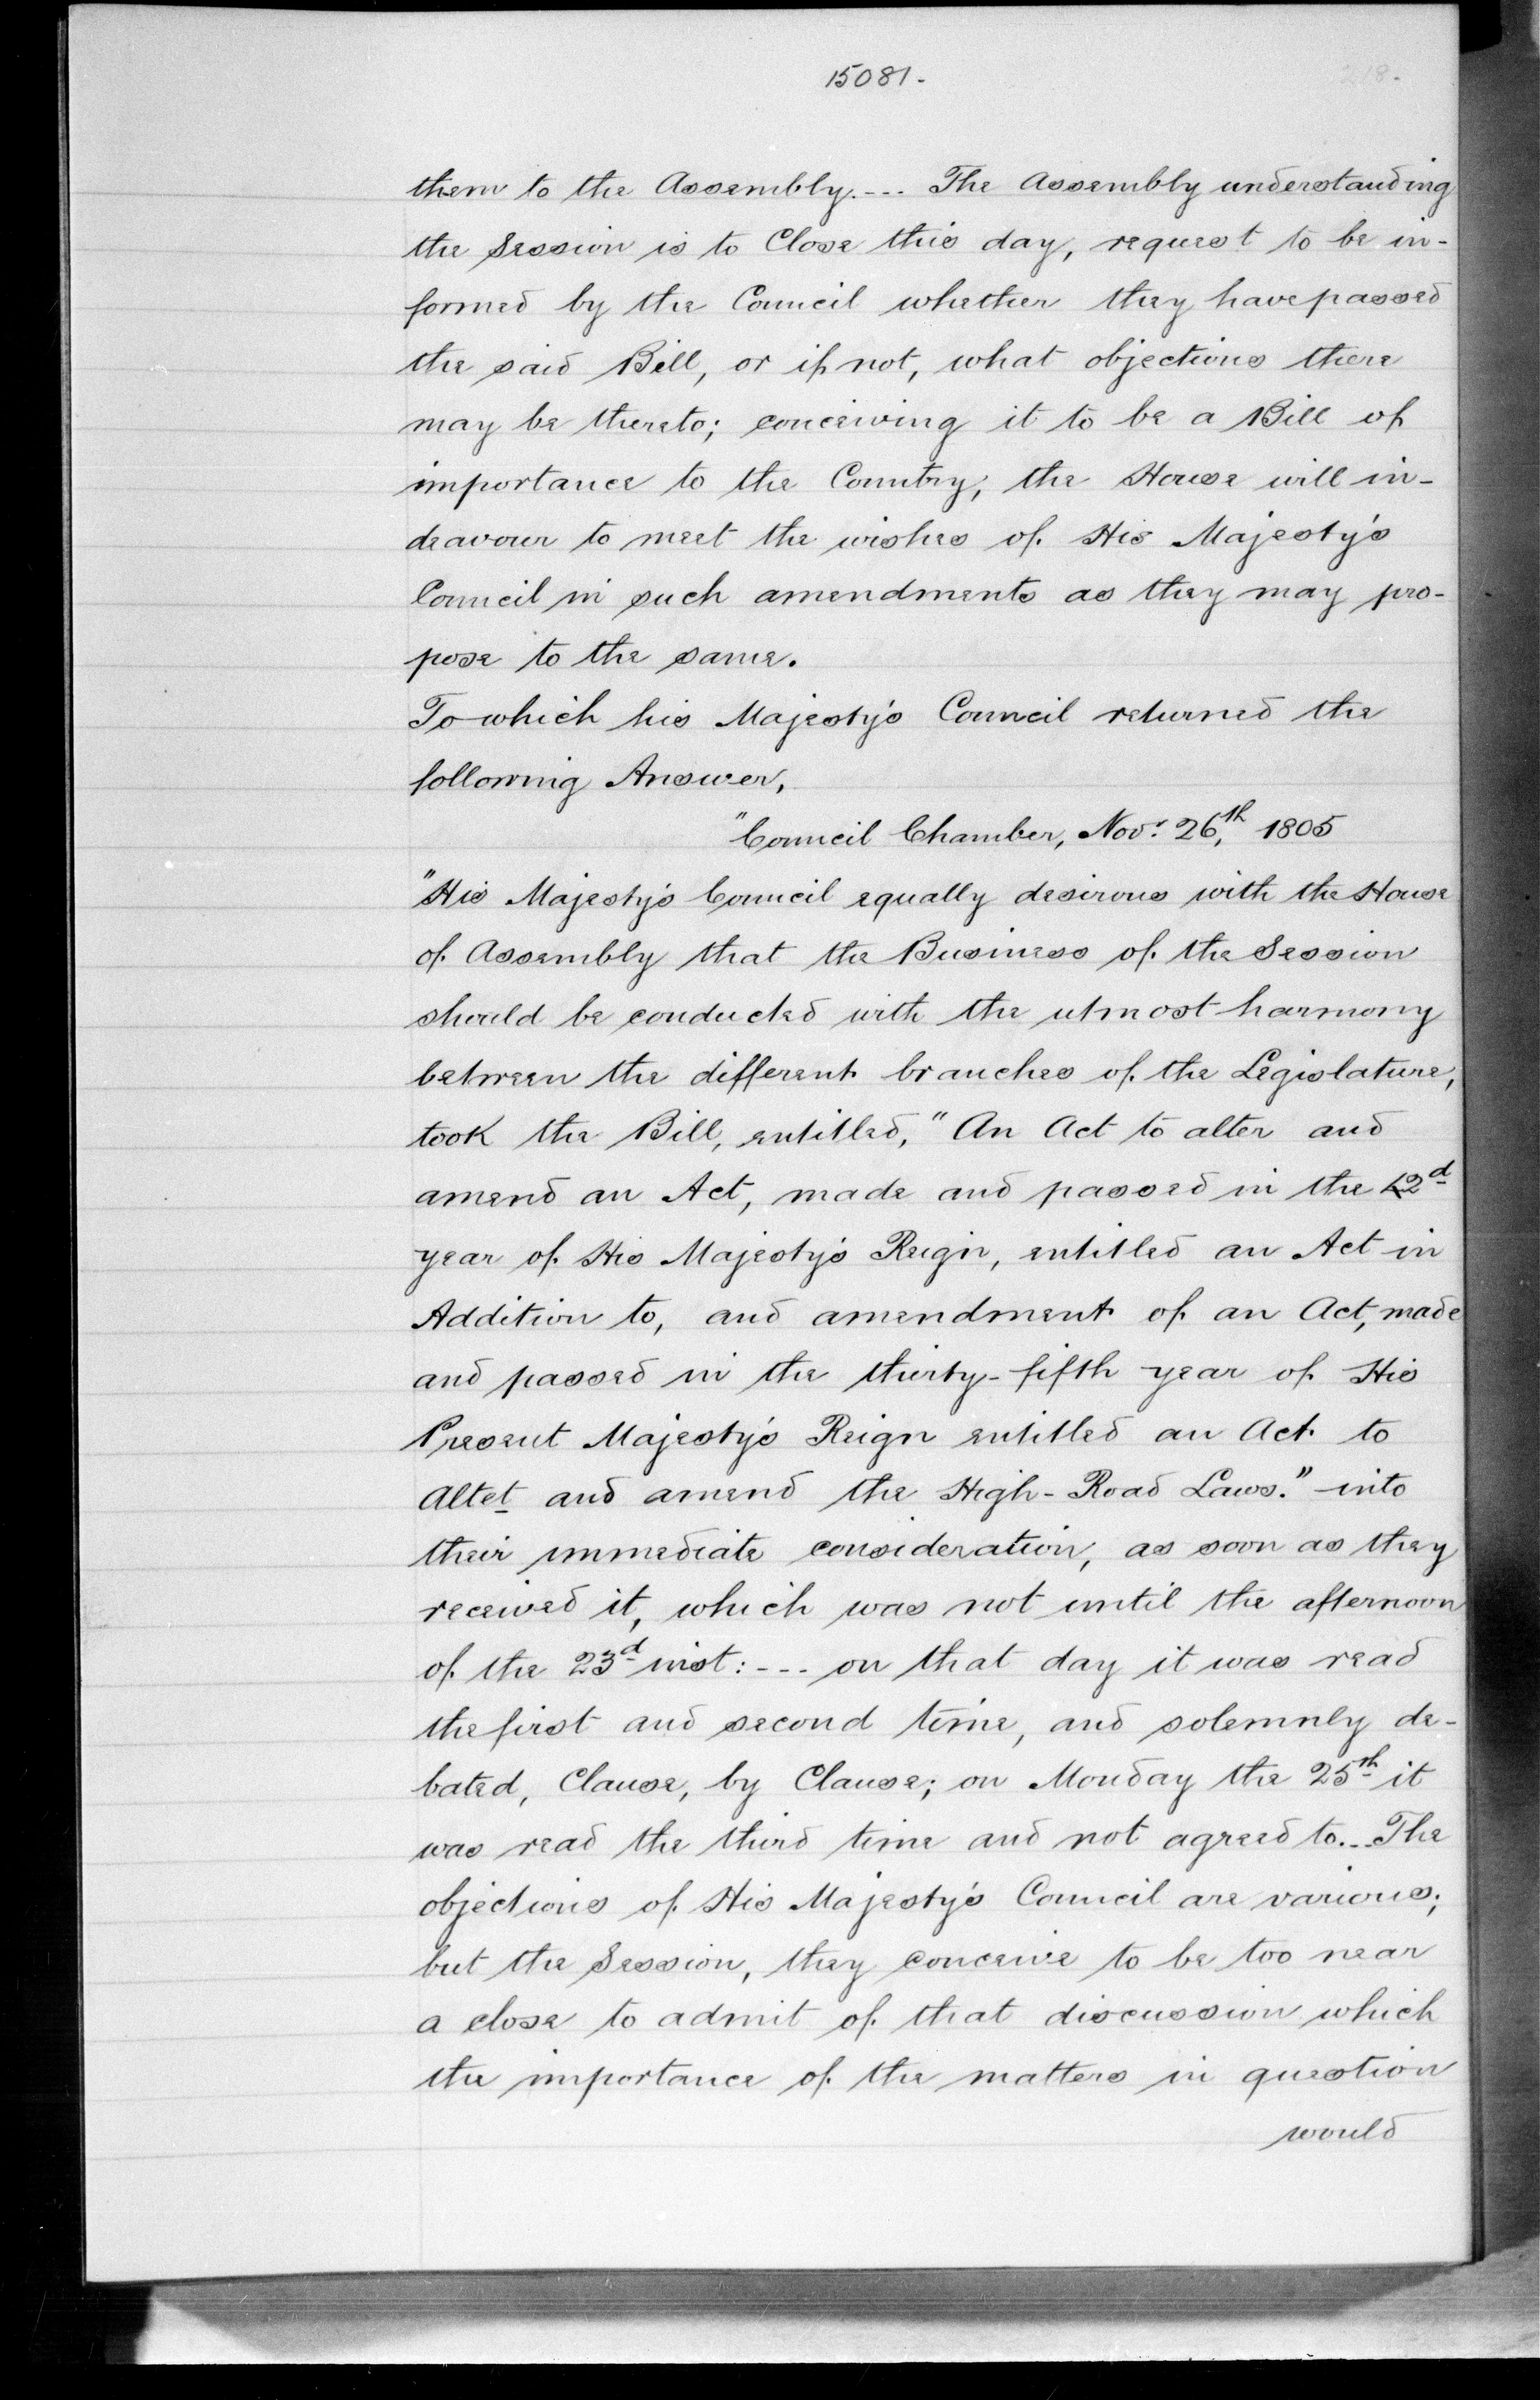 15081.
218.
them to the Assembly. --- The Assembly understanding
the Session is to Close this day, request to be in-
formed by the Council whether they have passed
the said Bill, or if not, what objections there
may be thereto; conceiving it to be a Bill of
importance to the Country, the House will in-
deavour to meet the wishes of His Majesty's
Council in such amendments as they may pro-
pose to the same.
To which his Majesty's Council returned the
following Answer,
"Council Chamber, Novr. 26th, 1805
"His Majesty's Council equally desirous with the House
of Assembly that the Business of the Session
should be conducted with the utmost harmony
between the different branches of the Legislature,
took the Bill, entitled, "An Act to alter and
amend an Act, made and passed in the 42d
year of His Majesty's Reign, entitled an Act in
Addition to, and amendment of an Act, made
and passed in the thirty-fifth year of His
Present Majesty's Reign entitled an Act to
Altet and amend the High-Road Laws." into
their immediate consideration, as soon as they
received it, which was not until the afternoon
of the 23d inst: --- on that day it was read
the first and second time, and solemnly de-
bated, Clause, by Clause; on Monday the 25th it
was read the third time and not agreed to. -- The
objections of His Majesty's Council are various;
but the Session, they conceive to be too near
a close to admit of that discussion which
the importance of the matters in question
would